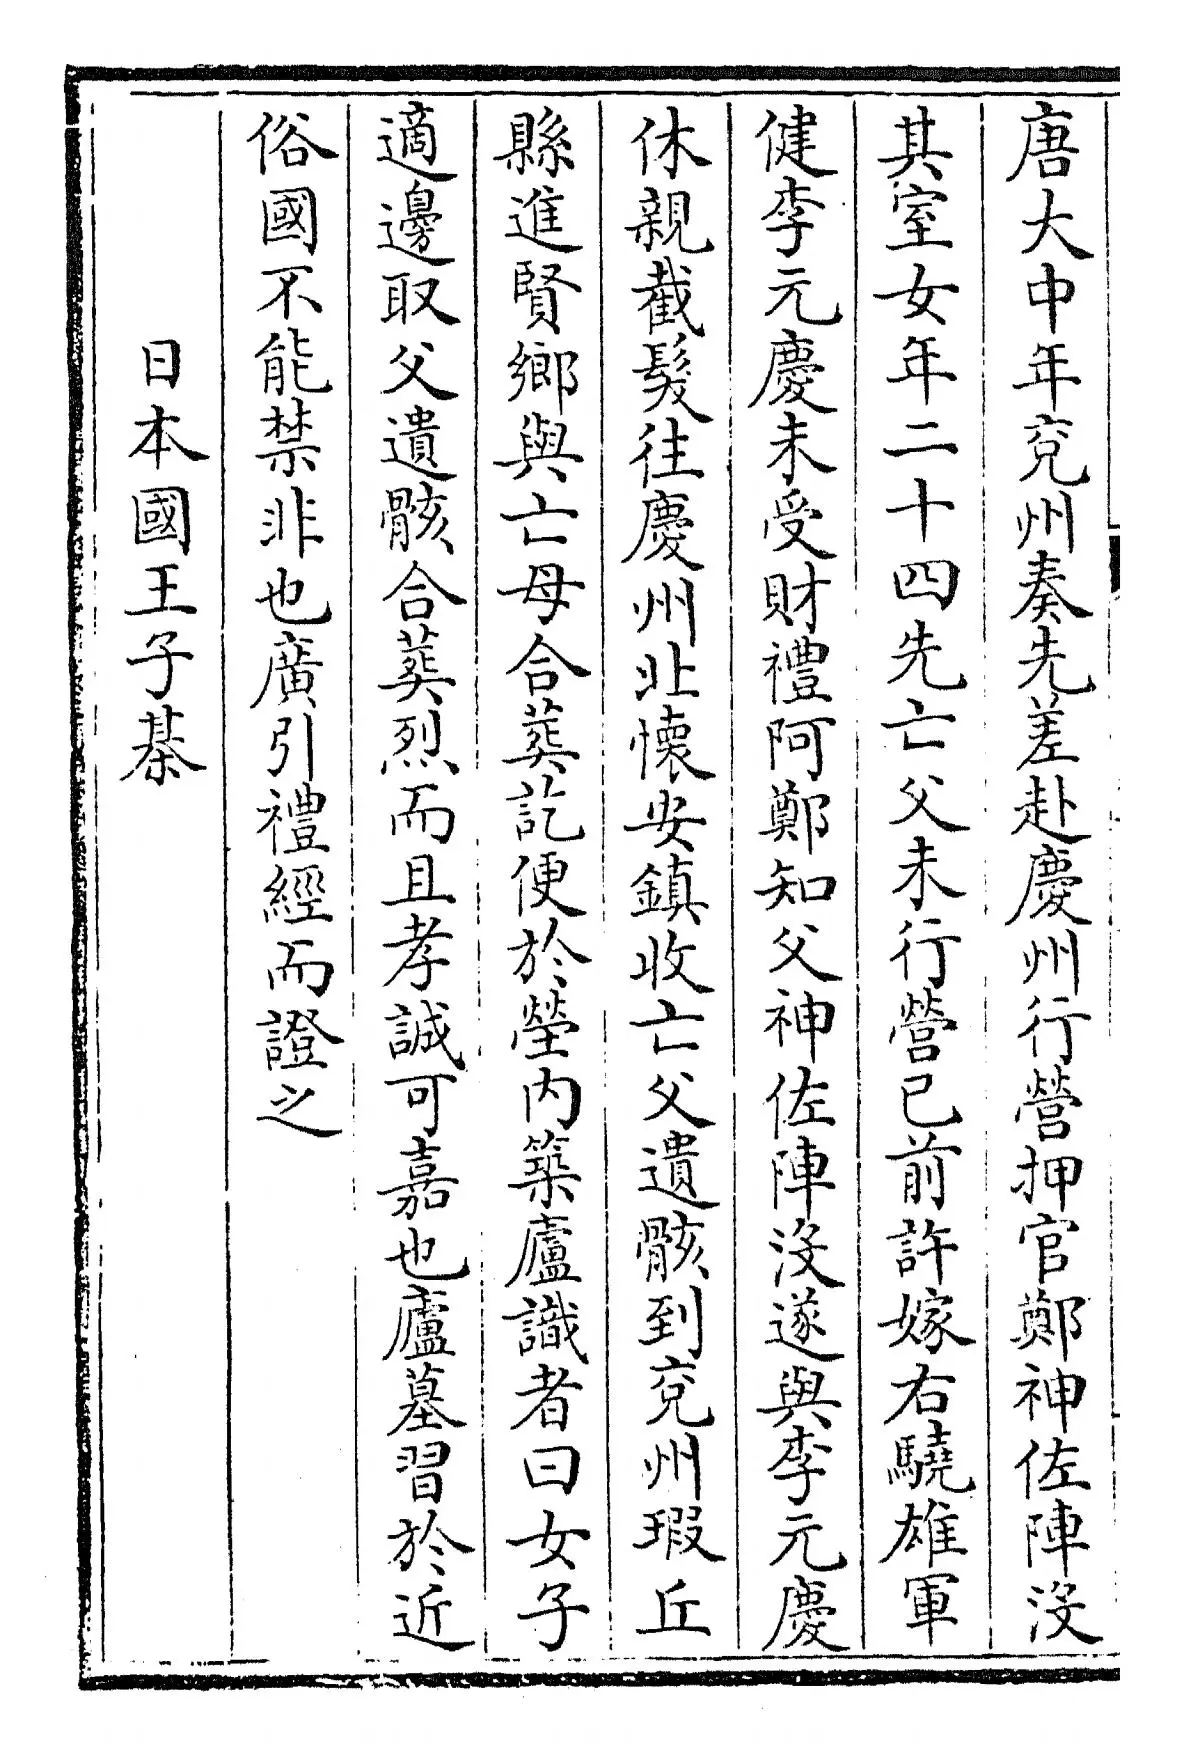 唐大中年兗州奏先差赴慶州行營押官鄭神佐陣沒
其室女年二十四先亡父未行營已前許嫁右驍雄軍
健李元慶未受財禮阿鄭知父神佐陣沒遂與李元慶
休親截髮往慶州北懷安鎮收亡父遺骸到兗州瑕丘
縣進賢鄉與亡母合葬訖便於塋內築廬識者曰女子
適邊取父遺骸合葬烈而且孝誠可嘉也廬墓習於近
俗國不能禁非也廣引禮經而證之
日本國王子棊